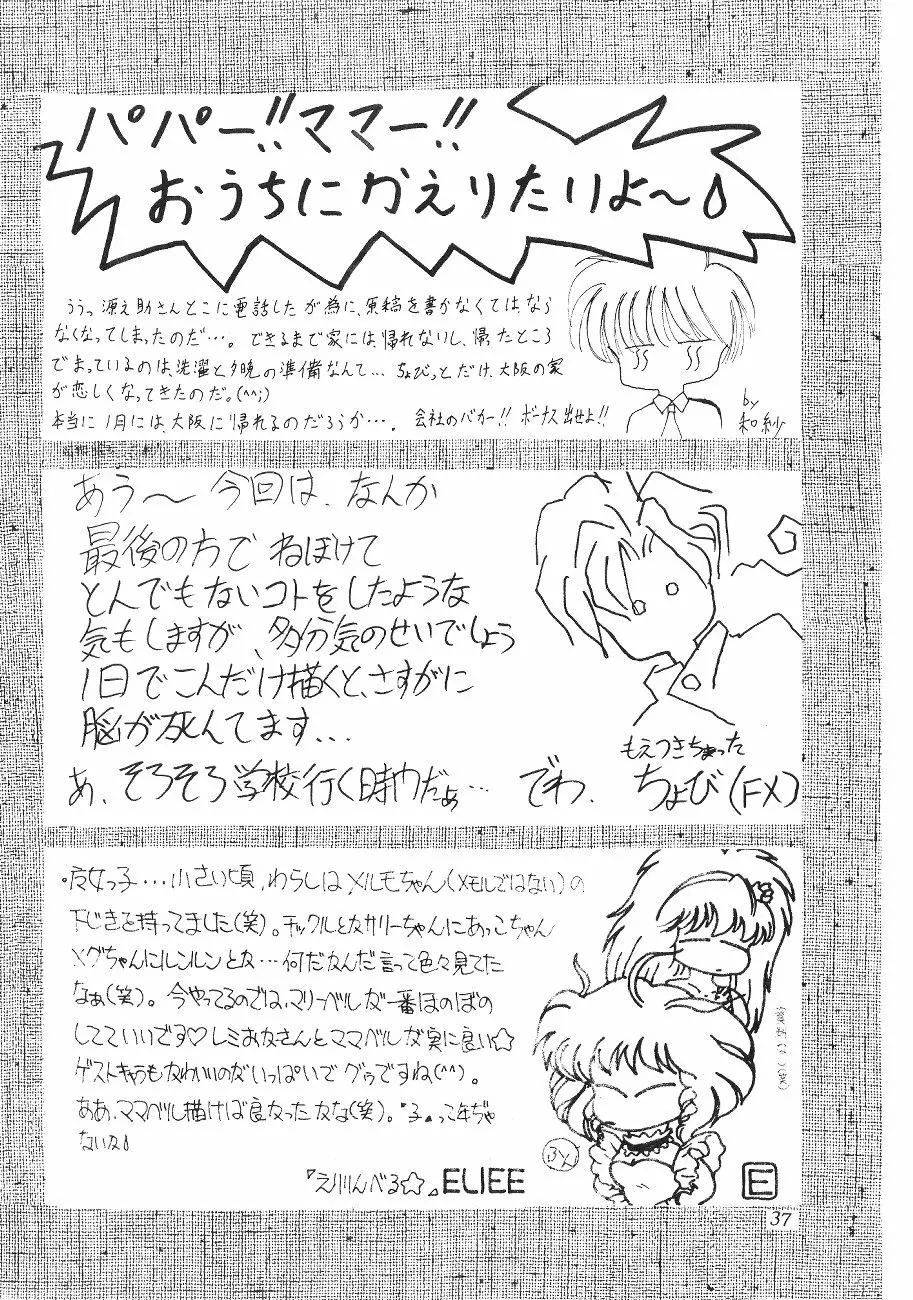 パパー!!ママー!!
おうちにかえりたりよ〜♪
ううっ源之助さんとこに電話したが為に、原稿を書かなくてはなら
なくなってしまったのだ…。できるまで家には帰れないし、帰ったところ
でまっているのは、洗濯と夕晩の準備なんて… ちょびっとだけ、大阪の家
が恋しくなってきたのだ。(^^;)
本当に1月には、大阪に帰れるのだろうか…。会社のバカー!! ボーナス出せよ!!
by
和紗
あう〜 今回は、なんか
最後の方で ねぼけて
とんでもないコトをしたような
気もしますが、多分気のせいでしょう
1日でこんだけ描くと、さすがに
脳が死んでます...
あ、そろそろ学校行く時間だぁ… でわ、
もえつきちゃった
ちょび(FX)
・魔女っ子…小さい頃、わらしはメルモちゃん(メモルではない)の
下じきを持ってました(笑)。チックルとかサリーちゃんにあっこちゃん
メグちゃんにルンルンとか…何だかんだ言って色々見てた
なぁ(笑)。今やってるのでは、マリーベルが一番ほのぼの
してていいです♡レミおかさんとママベルが実に良い☆
ゲストキャラもかわいいのがいっぱいでグゥですね(^^)。
ああ、ママベル描けば良かったかな(笑)。"子"って年ぢゃ
ないな♪
『えりりんべる☆』ELIEE
E
37